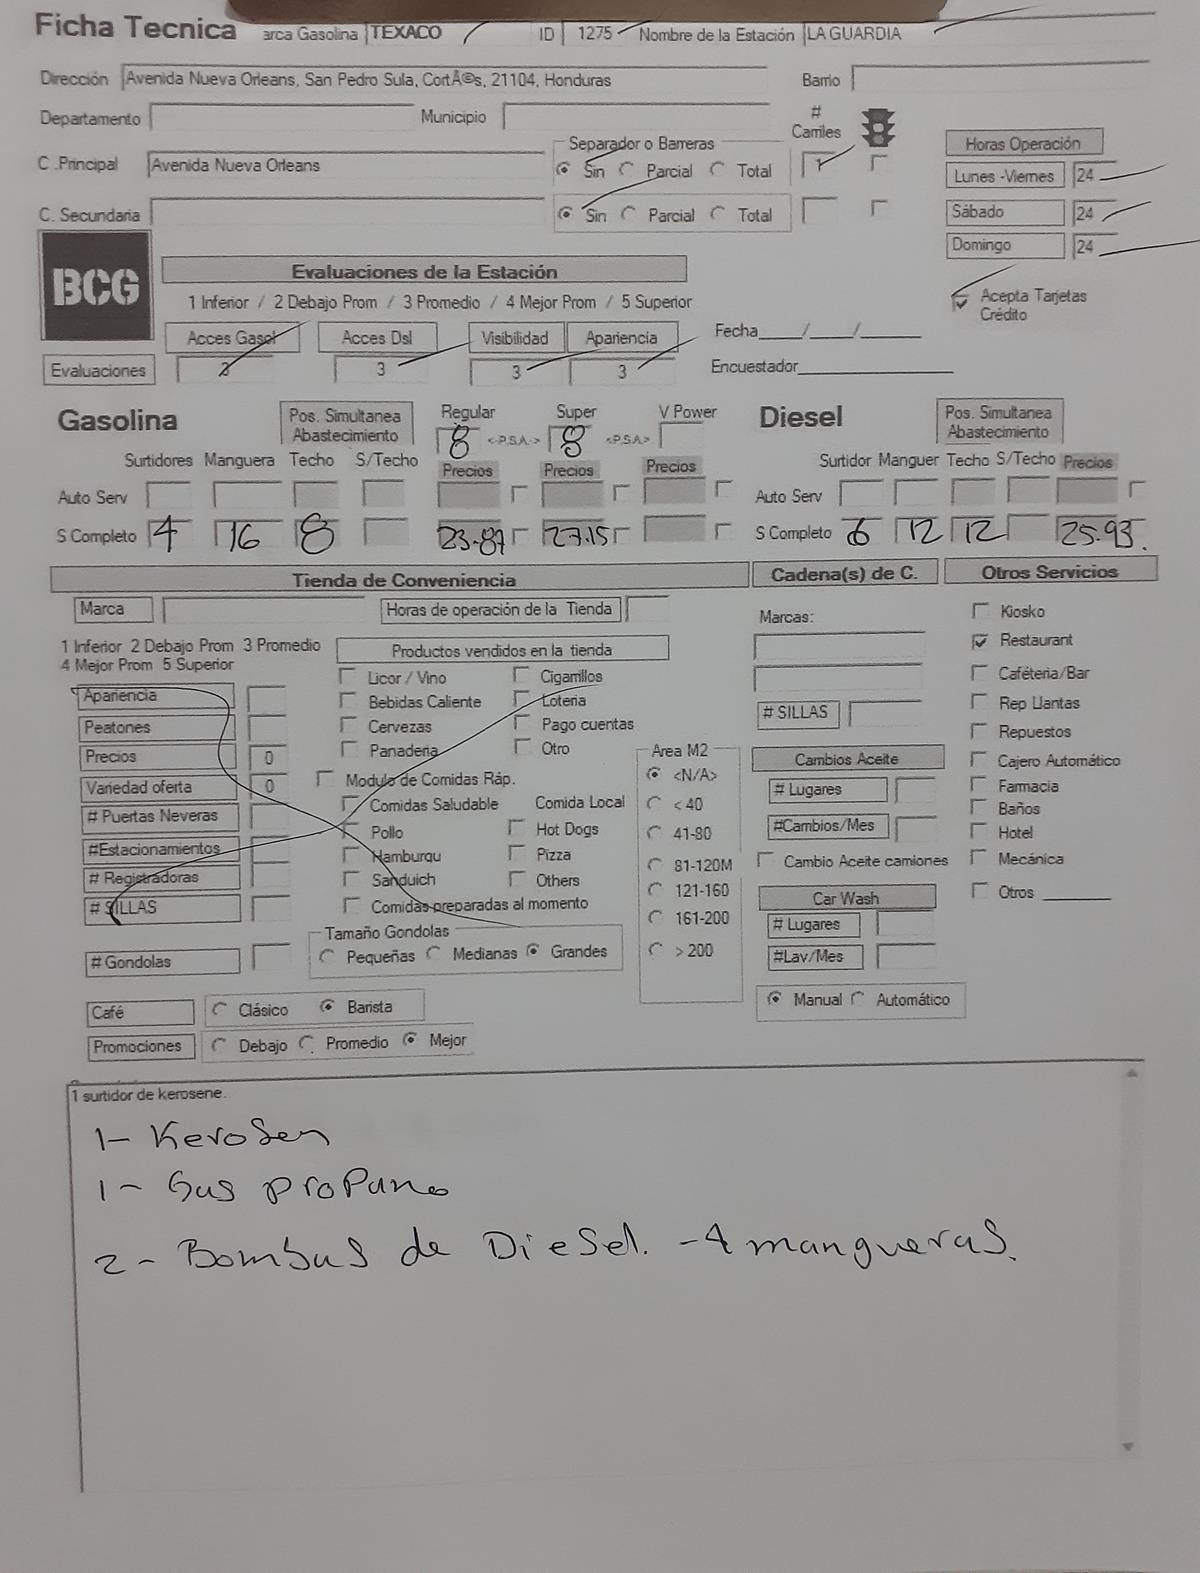 Ficha Tecnica arca Gasolina TEXACO ID 1275 Nombre de la Estación LA GUARDIA
Dirección Avenida Nueva Orleans, San Pedro Sula, CortÃ©s, 21104, Honduras Barrio
Departamento Municipio # Carriles
Separador o Barreras
C .Principal Avenida Nueva Orleans Sin Parcial Total 1
C. Secundaria Sin Parcial Total
Horas Operación
Lunes -Viernes 24
Sábado 24
Domingo 24
Acepta Tarjetas Crédito
BCG
Evaluaciones de la Estación
1 Inferior / 2 Debajo Prom / 3 Promedio / 4 Mejor Prom / 5 Superior
Acces Gasol Acces Dsl Visibilidad Apariencia Fecha____/____/______
Evaluaciones 3 3 3 3 Encuestador
Gasolina Pos. Simultanea Abastecimiento Regular Super V Power
8 <-P.S.A.-> 8 <P.S.A>
Surtidores Manguera Techo S/Techo Precios Precios Precios
Auto Serv
S Completo 4 16 8 23.87 27.15
Diesel Pos. Simultanea Abastecimiento
Surtidor Manguer Techo S/Techo Precios
Auto Serv
S Completo 6 12 12 25.93.
Tienda de Conveniencia
Marca Horas de operación de la Tienda
1 Inferior 2 Debajo Prom 3 Promedio
4 Mejor Prom 5 Superior
Apariencia
Peatones
Precios 0
Variedad oferta 0
# Puertas Neveras
#Estacionamientos
# Registradoras
# SILLAS
# Gondolas
Productos vendidos en la tienda
Licor / Vino Cigarrillos
Bebidas Caliente Loteria
Cervezas Pago cuentas
Panaderia Otro
Modulo de Comidas Ráp.
Comidas Saludable Comida Local
Pollo Hot Dogs
Hamburqu Pizza
Sanduich Others
Comidas preparadas al momento
Tamaño Gondolas
Pequeñas Medianas Grandes
Area M2
<N/A>
< 40
41-80
81-120M
121-160
161-200
> 200
Café Clásico Barista
Promociones Debajo Promedio Mejor
Cadena(s) de C.
Marcas:
# SILLAS
Cambios Aceite
# Lugares
#Cambios/Mes
Cambio Aceite camiones
Car Wash
# Lugares
#Lav/Mes
Manual Automático
Otros Servicios
Kiosko
Restaurant
Caféteria/Bar
Rep Llantas
Repuestos
Cajero Automático
Farmacia
Baños
Hotel
Mecánica
Otros
1 surtidor de kerosene.
1- Kerosen
1- Gas propano
2- Bombas de Diesel. -4 mangueras.